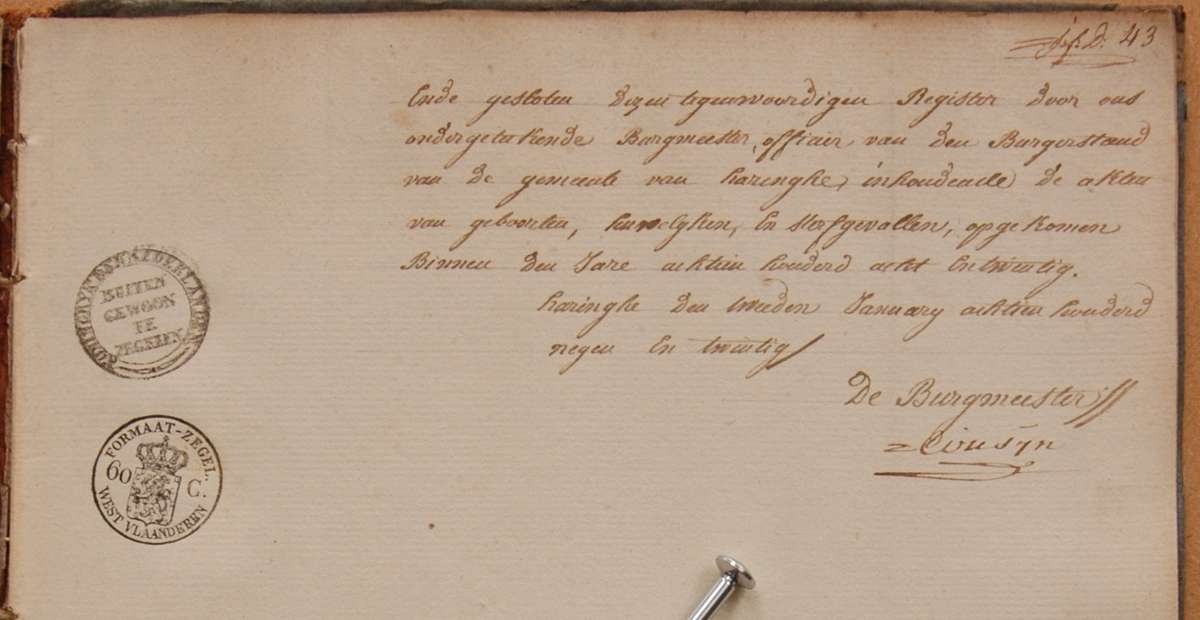 43
Ende gesloten dezen tegenwoordigen Register door ons
ondergetekende Burgmeester, officier van den Burgerstand
van de gemeente van haringhe, inhoudende de akten
van geboorten, huwelyken, En sterfgevallen, opgekomen
Binnen den Jare achtien honderd acht Entwintig.
haringhe den tweeden January achtien honderd
negen En twintig
De Burgmeester
Cousyn
KONINGRYK DER NEDERLANDEN
BUITEN
GEWOON
TE
ZEGELEN
FORMAAT-ZEGEL.
60 C.
WEST VLAANDEREN